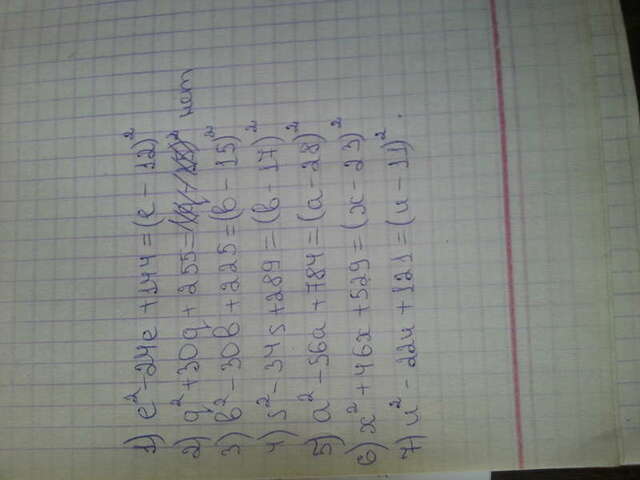 1) e² - 24e + 144 = (e - 12)²
2) q² + 30q + 255 = нет
3) в² - 30в + 225 = (в - 15)²
4) s² - 34s + 289 = (в - 17)²
5) a² - 56a + 784 = (a - 28)²
6) x² + 46x + 529 = (x - 23)²
7) u² - 22u + 121 = (u - 11)².